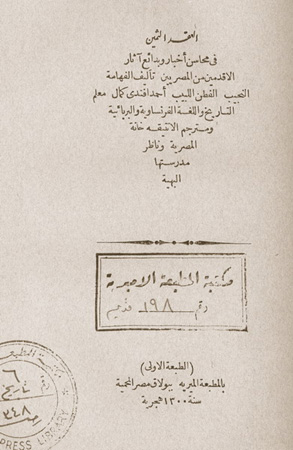 العقد الثمين
فى محاسن أخبار وبدائع آثار
الاقدمين من المصريين تأليف الفهامة
النجيب الفطن اللبيب أحمد افندى كمال معلم
التاريخ واللغة الفرنساوية والبربائية
ومترجم الانتيقه خانة
المصرية وناظر
مدرستها
البهية
مكتبة المطبعة الاميرية
رقم ١٩٨
(الطبعة الاولى)
بالمطبعة الميرية ببولاق مصر المحمية
سنة ١٣٠٠ هجرية
مكتبة المطبعة
٦
تاريخ
PRESS LIBRARY